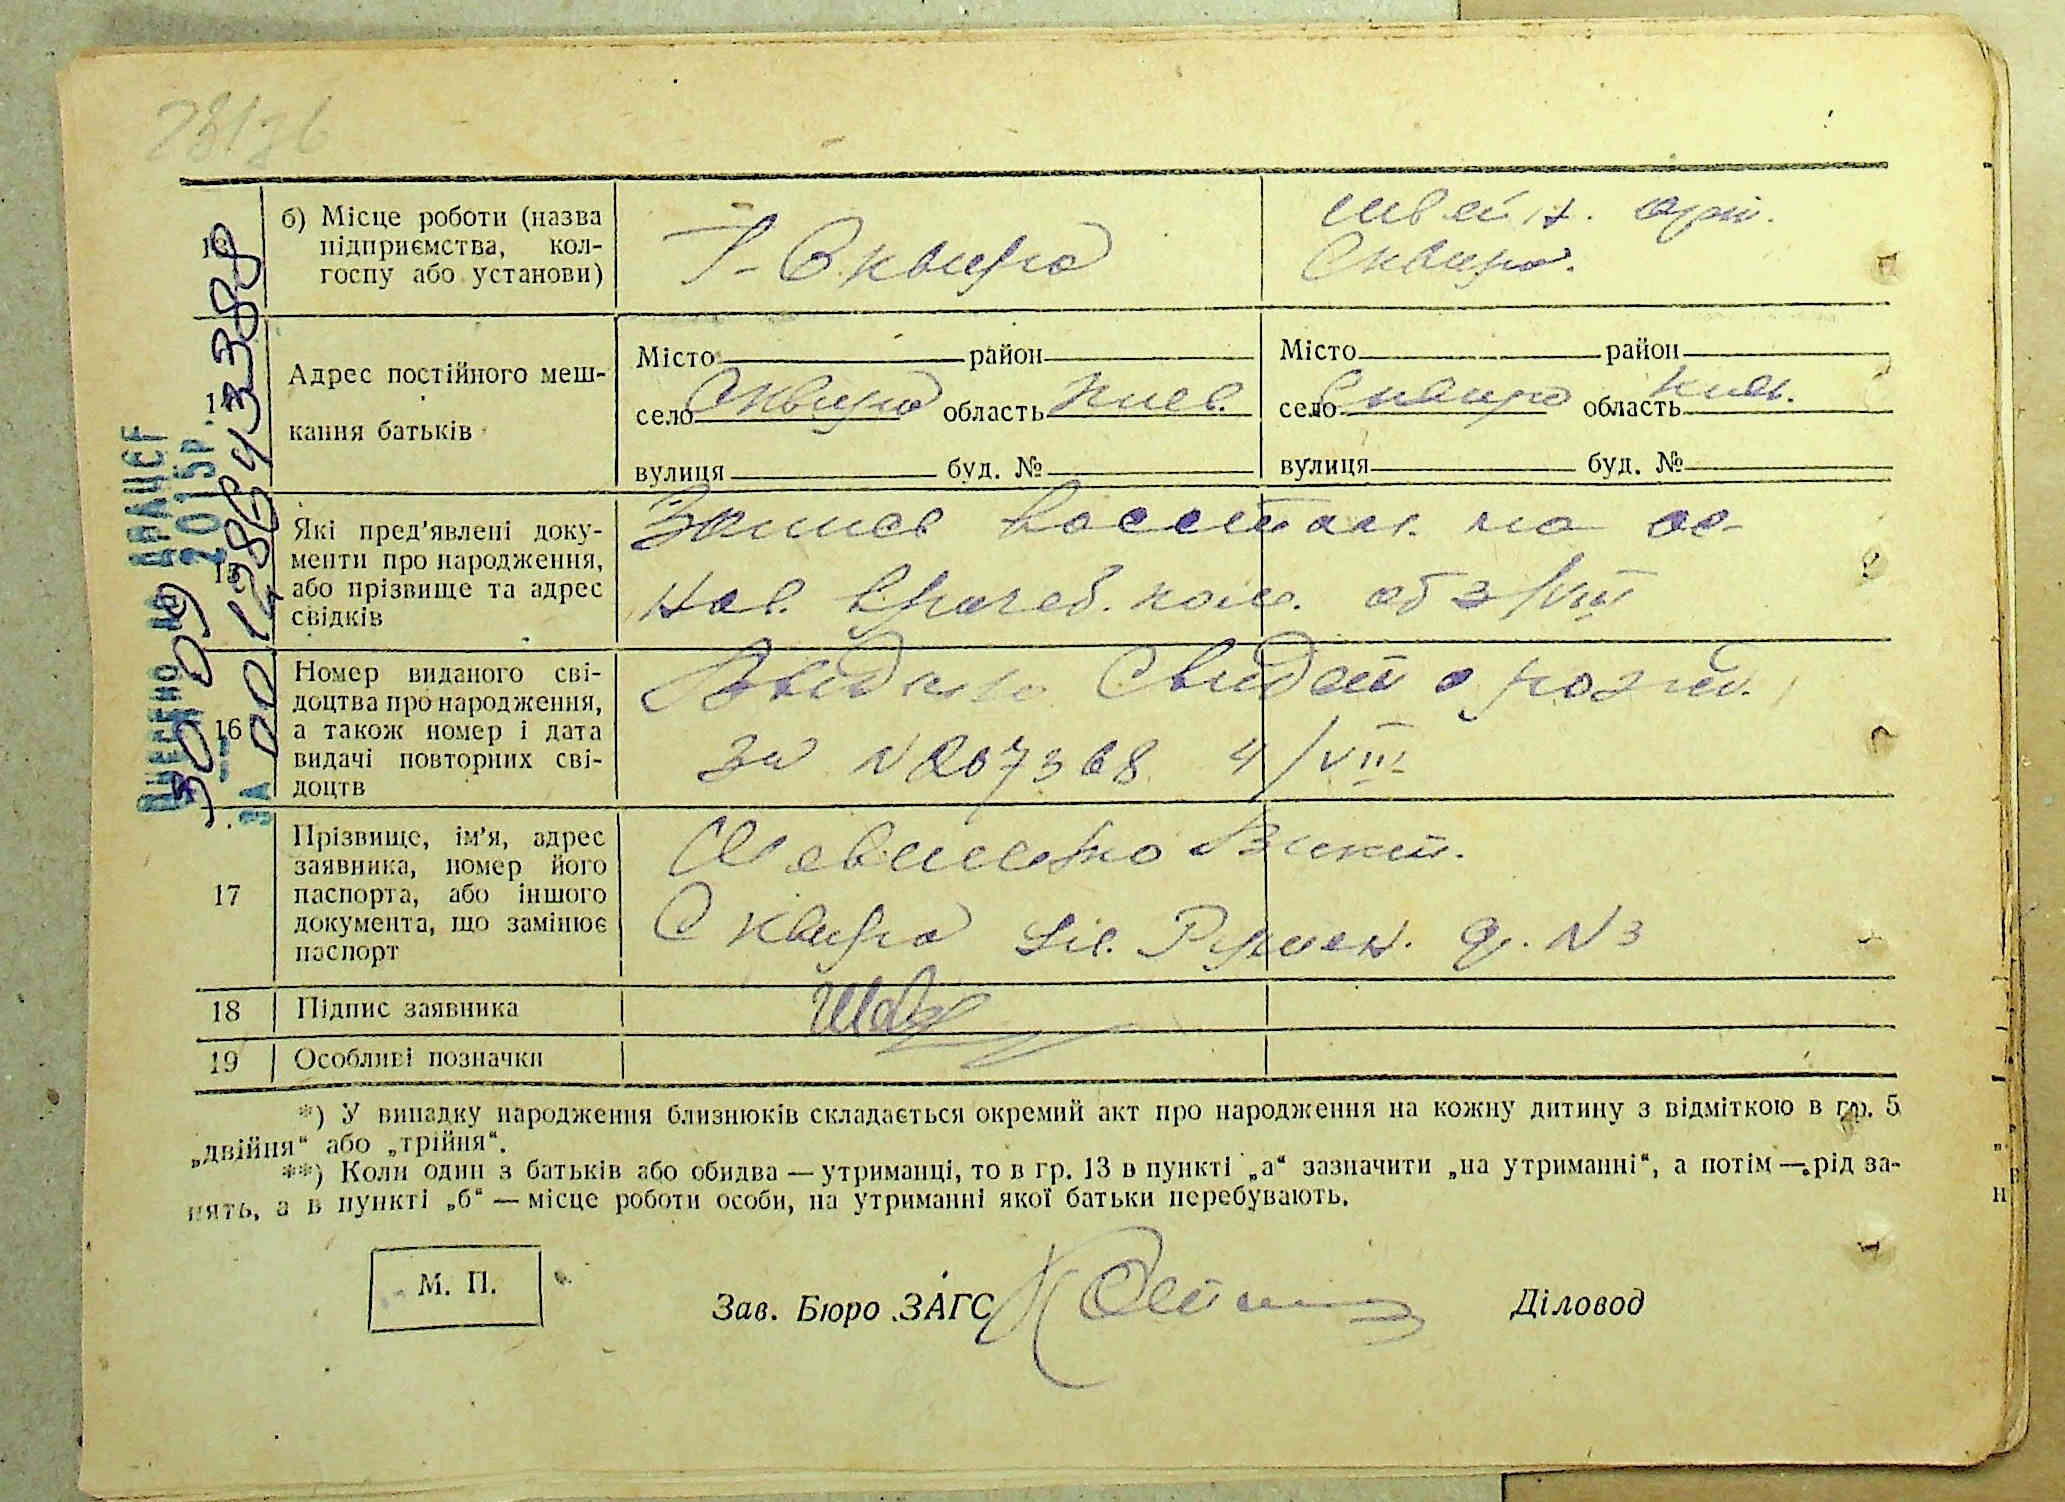 б) Місце роботи (назва
підприємства, кол-
госпу або установи)
Сквира
швейн. арт.
Сквира.
Адрес постійного меш-
кання батьків
Місто район
село Сквира область Киев.
вулиця буд. №
Місто район
село Сквира область Киев.
вулиця буд. №
15
Які пред'явлені доку-
менти про народження,
або прізвище та адрес
свідків
Запись восстан. на ос-
нов. врачеб. ком. об 3/VIII
16
Номер виданого сві-
доцтва про народження,
а також номер і дата
видачі повторних сві-
доцтв
Свидет о рожд.
за N 207368 4/VIII
17
Прізвище, ім'я, адрес
заявника, номер його
паспорта, або іншого
документа, що замінює
паспорт
Сквира д. N 3
18 Підпис заявника
19 Особливі позначки
*) У випадку народження близнюків складається окремий акт про народження на кожну дитину з відміткою в гр. 5
„двійня“ або „трійня“.
**) Коли один з батьків або обидва — утриманці, то в гр. 13 в пункті „а“ зазначити „на утриманні“, а потім — рід за-
нять, а в пункті „б“ — місце роботи особи, на утриманні якої батьки перебувають.
М. П.
Зав. Бюро ЗАГС
Діловод
Внесено до ДРАЦСГ
30 09 2015р.
ЗА